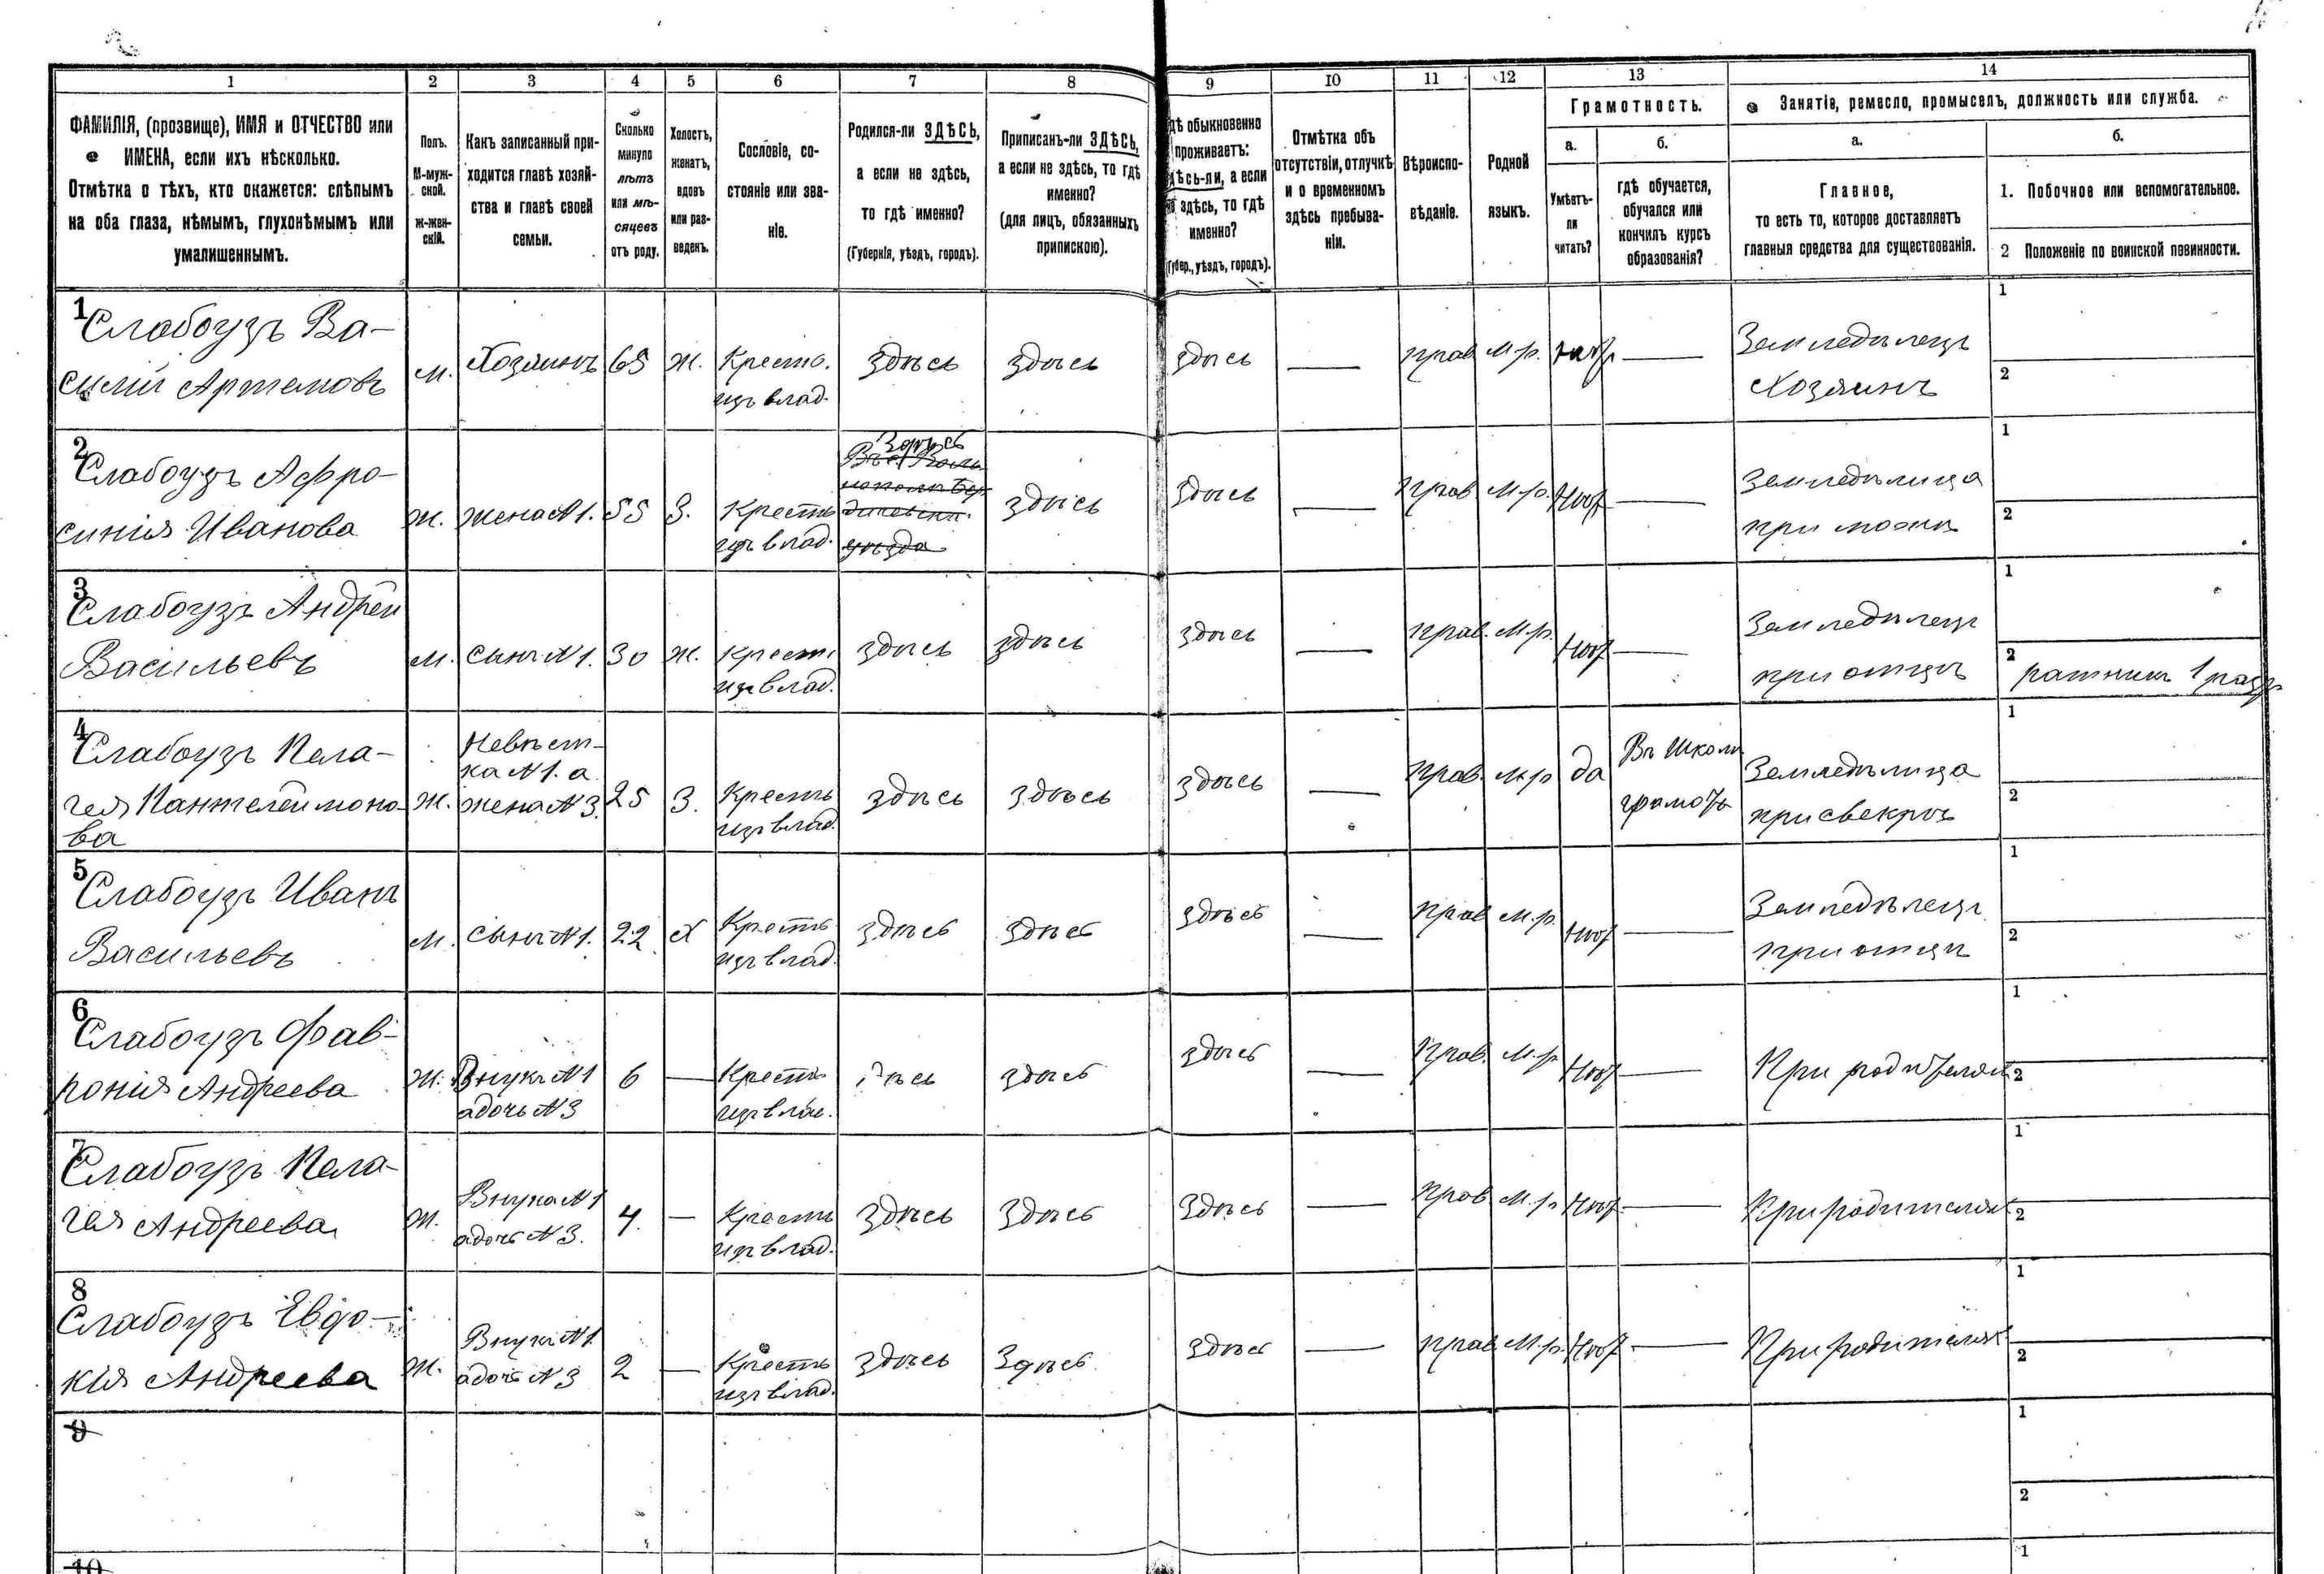 1 2 3 4 5 6 7 8 9 10 11 12 13 14
ФАМИЛІЯ, (прозвище), ИМЯ и ОТЧЕСТВО или
ИМЕНА, если ихъ нѣсколько.
Отмѣтка о тѣхъ, кто окажется: слѣпымъ
на оба глаза, нѣмымъ, глухонѣмымъ или
умалишеннымъ.
Полъ.
М-муж-
ской.
ж-жен-
скій.
Какъ записанный при-
ходится главѣ хозяй-
ства и главѣ своей
семьи.
Сколько
минуло
лѣтъ
или мѣ-
сяцевъ
отъ роду.
Холостъ,
женатъ,
вдовъ
или раз-
веденъ.
Сословіе, со-
стояніе или зва-
ніе.
Родился-ли ЗДѢСЬ,
а если не здѣсь,
то гдѣ именно?
(Губернія, уѣздъ, городъ).
Приписанъ-ли ЗДѢСЬ,
а если не здѣсь, то гдѣ
именно?
(для лицъ, обязанныхъ
припискою).
дѣ обыкновенно
проживаетъ:
дѣсь-ли, а если
не здѣсь, то гдѣ
именно?
(Губер., уѣздъ, городъ).
Отмѣтка объ
отсутствіи, отлучкѣ
и о временномъ
здѣсь пребыва-
ніи.
Вѣроиспо-
вѣданіе.
Родной
языкъ.
Грамотность.
а.
Умѣетъ-
ли
читать?
б.
гдѣ обучается,
обучался или
кончилъ курсъ
образованія?
Занятіе, ремесло, промыселъ, должность или служба.
а.
Главное,
то есть то, которое доставляетъ
главныя средства для существованія.
б.
1. Побочное или вспомогательное.
2 Положеніе по воинской повинности.
1
Слабоузъ Ва-
силій Артемовъ
м. Хозяинъ 65 ж. Крестъ. здѣсь здѣсь здѣсь — прав м.р. нѣт — Земледѣлецъ
изъ влад. Хозяинъ
1
2
2
Слабоузъ Афро-
синія Иванова
ж. жена N1. 55 З. Крестъ
изъ влад.
Здѣсь
уѣзда
здѣсь здѣсь — прав м.р. нѣт — Земледѣлица
при мужѣ
1
2
3
Слабоузъ Андрей
Васильевъ
м. сынъ N1. 30 ж. Крест. здѣсь здѣсь здѣсь — прав. м.р. нѣт — Земледѣлецъ
изъ влад. при отцѣ
1
2 ратникъ 1 разр
4
Слабоузъ Пела-
гея Пантелеймоно-
ва
ж. Невѣст-
ка N1. а
жена N3. 25 З. Крестъ здѣсь здѣсь здѣсь — прав м.р да Въ Школѣ Земледѣлица
изъ влад. грамоты при свекрѣ
1
2
5
Слабоузъ Иванъ
Васильевъ
м. сынъ N1. 22 Х Крестъ здѣсь здѣсь здѣсь — прав м.р. нѣт — Земледѣлецъ
изъ влад. при отцѣ
1
2
6
Слабоузъ Фав-
ронія Андреева
ж. Внука N1 6 — Крестъ здѣсь здѣсь здѣсь — прав. м.р. нѣт — При родителях
а дочь N3 изъ влад.
1
2
7
Слабоузъ Пела-
гея Андреева
ж. Внука N1 4. — Крестъ здѣсь здѣсь здѣсь — прав м.р нѣт — При родителях
а дочь N3. изъ влад.
1
2
8
Слабоузъ Евдо-
кія Андреева
ж. Внука N1. 2 — Крестъ здѣсь здѣсь здѣсь — прав м.р. нѣт — При родителях
а дочь N3 изъ влад.
1
2
9
1
2
10
1